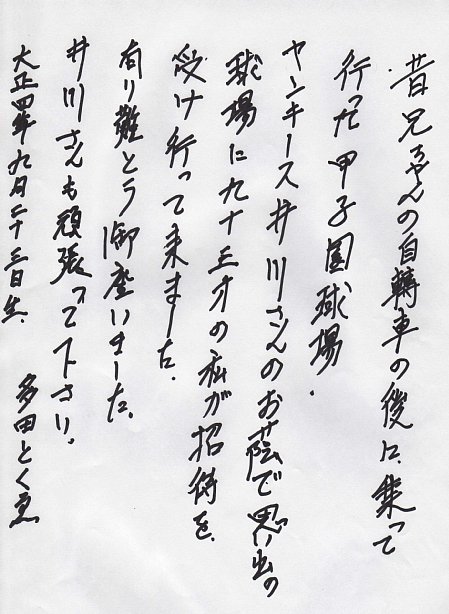 昔兄ちゃんの自轉車の後に、乗って
行った甲子園球場.
ヤンキース井川さんのお蔭で思い出の
球場に九十三才の私が招待を、
受け行って来ました.
有り難とう御座いました.
井川さんも頑張って下さい.
大正四年九月二十三日生. 多田とくゑ